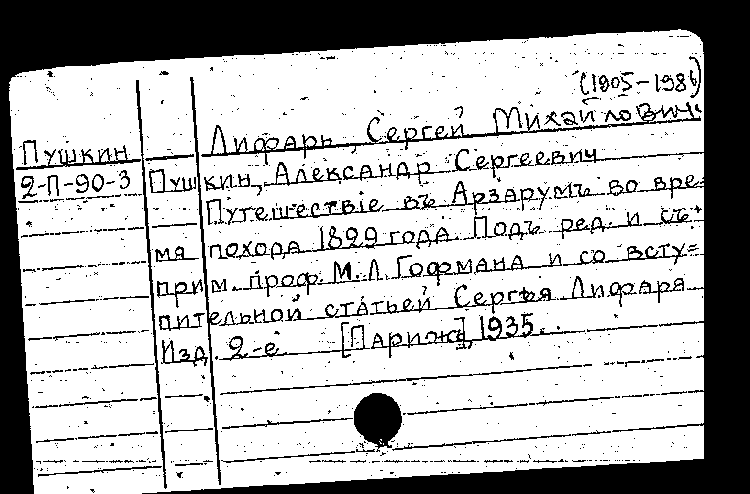 (1905-1986)
Лифарь, Сергей Михайлович.
Пушкин
2-П-90-3
Пушкин, Александр Сергеевич
Путешествіе въ Арзарумъ во вре-
мя похода 1829 года. Подъ ред. и съ
прим. проф. М.Л. Гофмана и со всту=
пительной статьей Сергѣя Лифаря
Изд. 2-е [Париж], 1935.